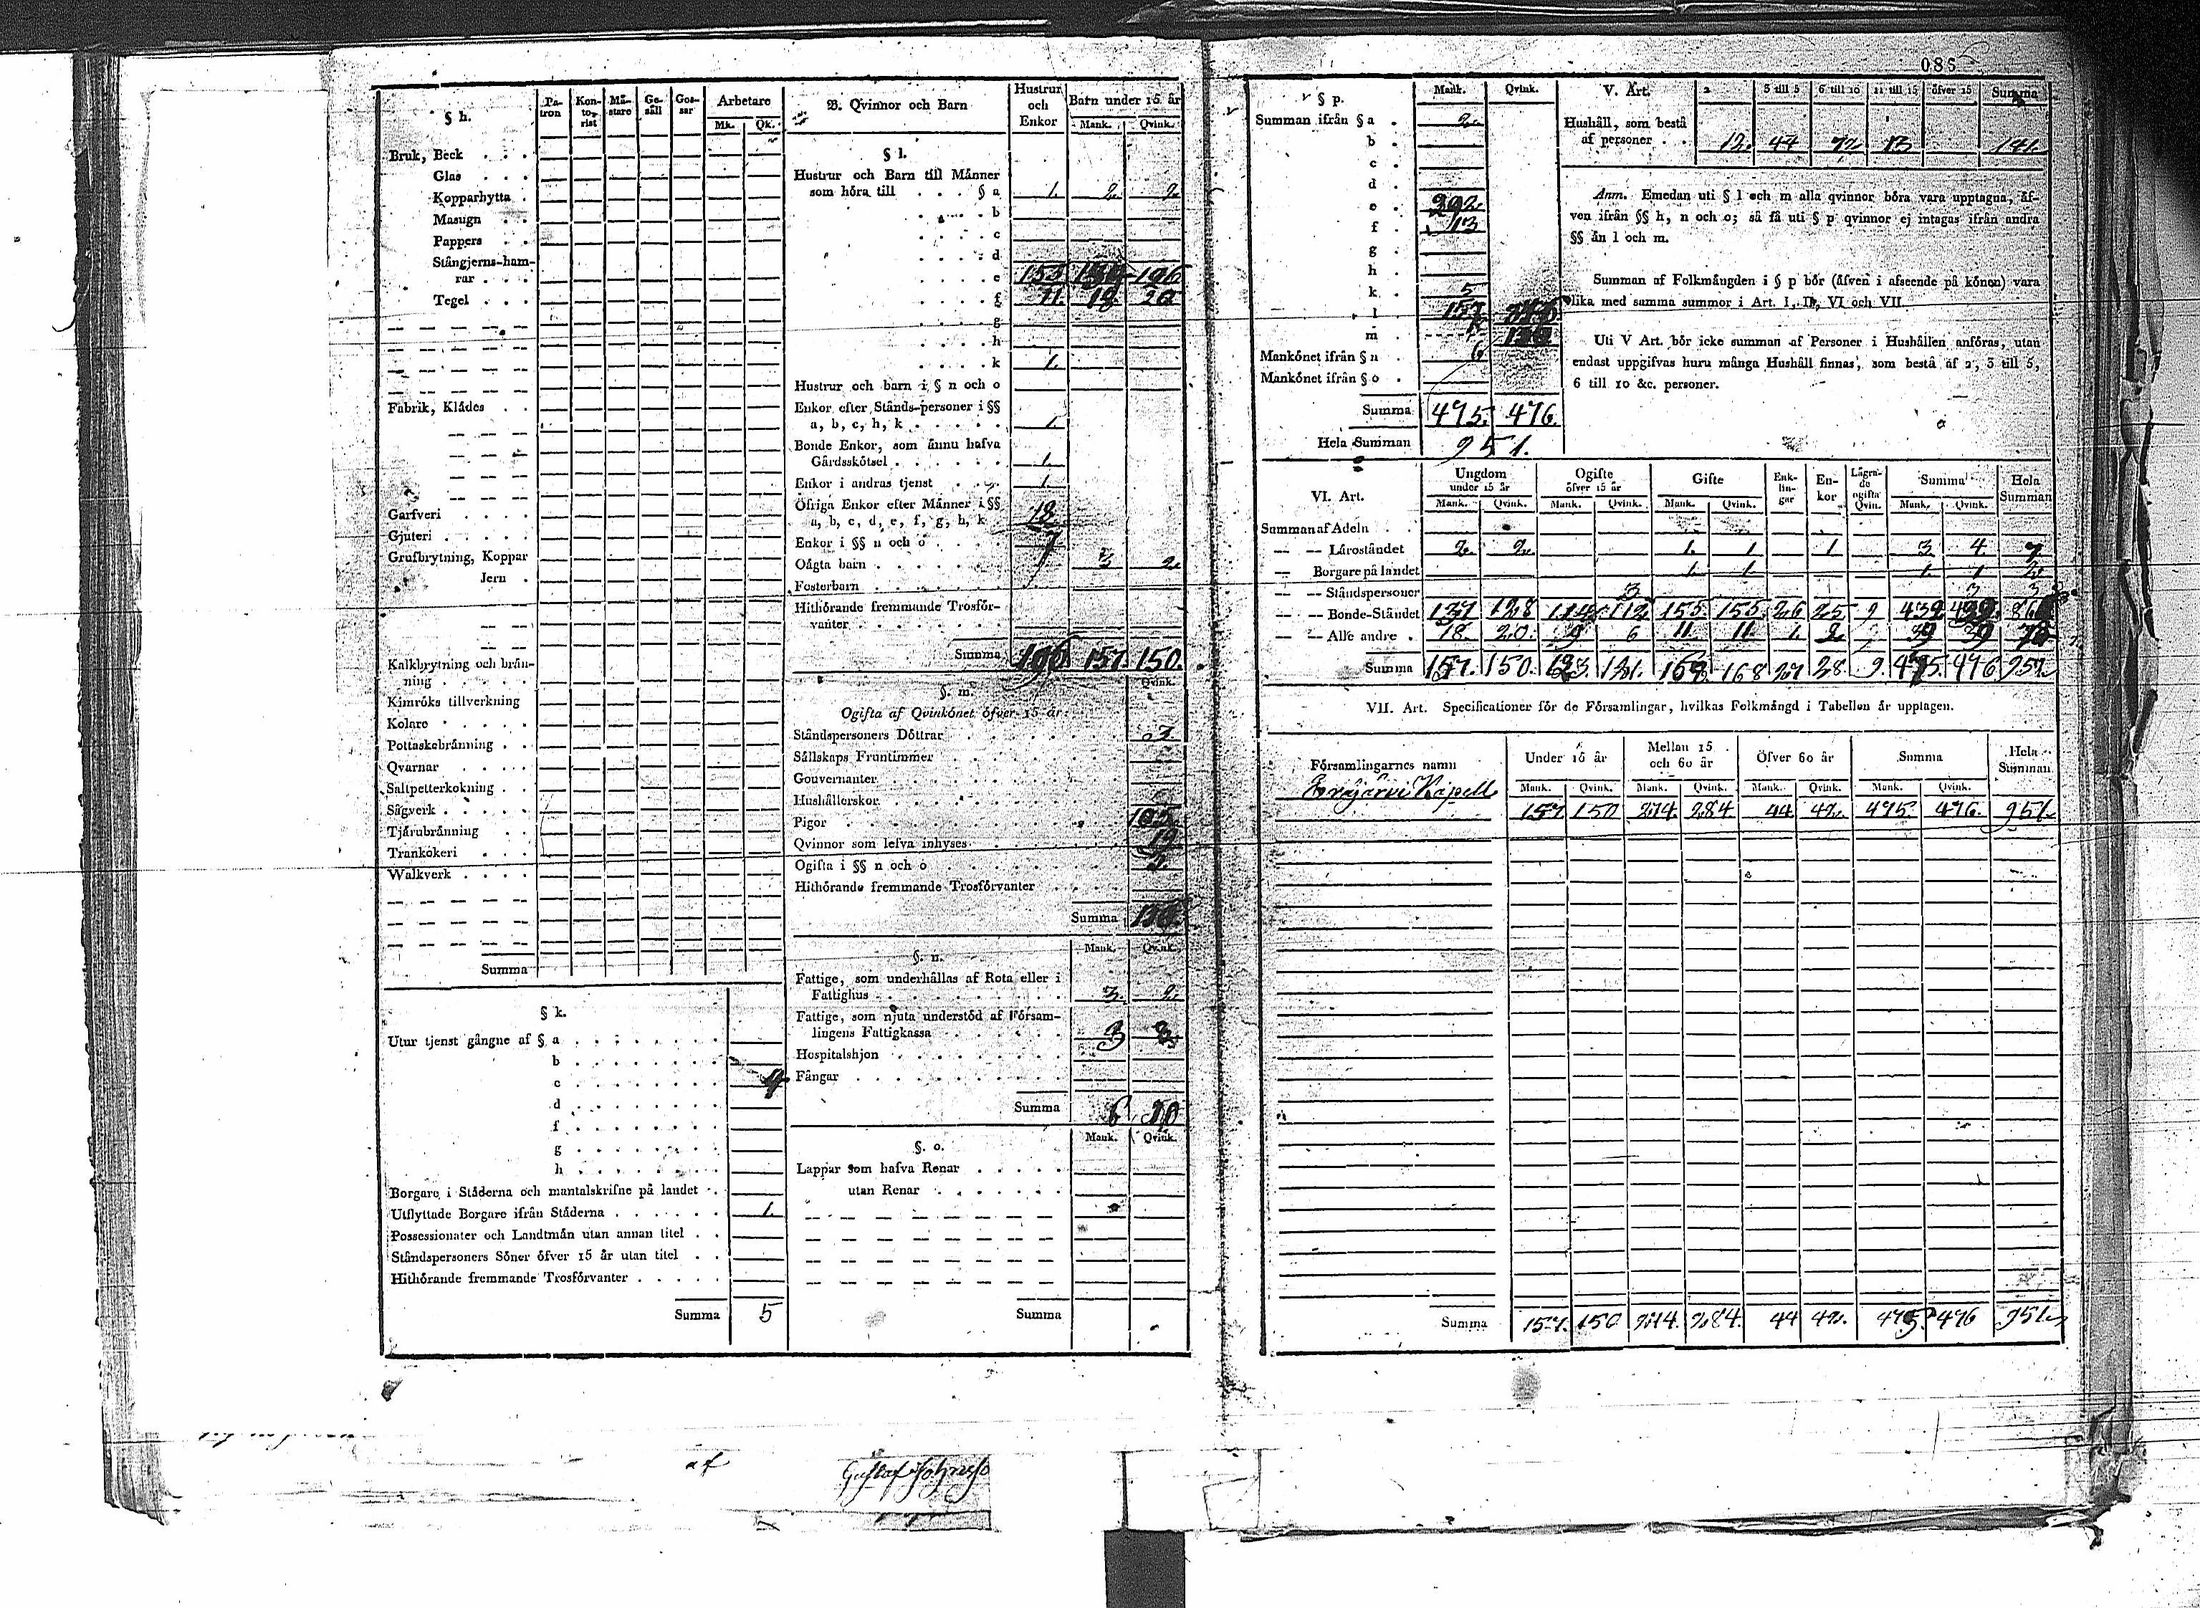 085
§ h.
Pa-
tron
Kon-
to-
rist
Må-
stare
Ge-
säll
Gos-
sar
Arbetare
Mk. Qk.
Bruk, Beck . . .
Glas . . .
Kopparhytta .
Masugn . .
Pappers . .
Stångjerns-ham-
rar . . .
Tegel . . .
Fabrik, Klädes . .
Garfveri . . . .
Gjuteri . . . . .
Grufbrytning, Koppar
Jern .
Kalkbrytning och brän-
ning . . . . .
Kimröks tillverkning
Kolare . . . .
Pottaskebränning . .
Qvarnar . . . .
Saltpetterkokning . .
Sågverk . . . . .
Tjärubränning . .
Trankokeri . . .
Walkverk . . . .
Summa
§ k.
Utur tjenst gångne af § a . . . . . . .
b . . . . . . .
c . . . . . . . 4
d . . . . . . .
f . . . . . . .
g . . . . . . .
h . . . . . . .
Borgare i Städerna och mantalskrifne på landet . .
Utflyttade Borgare ifrån Städerna . . . . . . 1.
Possessionater och Landtmän utan annan titel . .
Ståndspersoners Söner öfver 15 år utan titel . .
Hithörande fremmande Trosförvanter . . . . .
Summa 5
B. Qvinnor och Barn
Hustrur
och
Enkor
Barn under 15 år
Mank. Qvink.
§ l.
Hustrur och Barn till Männer
som höra till . . . § a 1. 2. 2.
. . . . b
. . . . c
. . . . d
. . . . e 153 134 126
. . . . f 11. 18 20
. . . . g
. . . . h
. . . . k 1.
Hustrur och barn i § n och o
Enkor efter Stånds-personer i §§
a, b, c, h, k . . . . . 1.
Bonde Enkor, som ännu hafva
Gårdsskötsel . . . . . . 1.
Enkor i andras tjenst . . . 1.
Öfriga Enkor efter Männer i §§
a, b, c, d, e, f, g, h, k 18
Enkor i §§ n och o . . . 7
Oägta barn . . . . . . . 3 2.
Fosterbarn . . . . . . .
Hithörande fremmande Trosför-
vanter . . . . . . .
Summa 196 157. 150.
§. m.
Qvink.
Ogifta af Qvinkönet öfver 15 år:
Ståndspersoners Döttrar . . . . . . . 3.
Sällskaps Fruntimmer . . . . . . .
Gouvernanter . . . . . . .
Hushållerskor . . . . . . .
Pigor . . . . . . . 105
Qvinnor som lefva inhyses . . . . . 19
Ogifta i §§ n och o . . . . . . 3
Hithörande fremmande Trosförvanter . . . .
Summa 130
§. n.
Mank. Qvink.
Fattige, som underhållas af Rota eller i
Fattighus . . . . . . . . 3. 2.
Fattige, som njuta understöd af Försam-
lingens Fattigkassa . . . . . 3
Hospitalshjon . . . . . . . .
Fångar . . . . . . . . .
Summa 6 10
Mank. Qvink.
§. o.
Lappar som hafva Renar . . . . .
utan Renar . . . . . .
Summa
§ p.
Mank. Qvink.
Summan ifrån § a . 2.
b .
c .
d .
e . 292.
f . 13
g .
h .
k . 5
l . 157. 346
m . 130
Mankönet ifrån § n . 6
Mankönet ifrån § o .
Summa 475. 476.
Hela Summan 951.
V. Art.
2 3 till 5 6 till 10 11 till 15 öfver 15 Summa
Hushåll, som bestå
af personer . . 12. 44 72. 13 141.
Anm. Emedan uti § l och m alla qvinnor böra vara upptagna, äf-
ven ifrån §§ h, n och o; så få uti § p qvinnor ej intagas ifrån andra
§§ än l och m.
Summan af Folkmängden i § p bör (äfven i afseende på könen) vara
lika med samma summor i Art. I, II, VI och VII
Uti V Art. bör icke summan af Personer i Hushållen anföras, utan
endast uppgifvas huru många Hushåll finnas, som bestå af 2, 3 till 5,
6 till 10 &c. personer.
VI. Art.
Ungdom
under 15 år
Ogifte
öfver 15 år
Gifte
Enk-
lin-
gar
En-
kor
Lägra-
de
ogifta
Qvin.
Summa
Hela
Summan
Mank. Qvink. Mank. Qvink. Mank. Qvink. Mank. Qvink.
Summan af Adeln . .
— — Läroståndet 2. 2. 1. 1. 1 3. 4. 7.
— Borgare på landet 1. 1. 1. 1. 2.
— — Ståndspersoner 3 3 3
— — Bonde-Ståndet 137 128 114 112 155. 155. 26 25. 9 432
— — Alle andre . 18. 20. 9 6 11. 11. 1. 2. 39 39 78
Summa 157. 150. 123. 121. 168 168 27 28. 9. 475. 476 951.
VII. Art. Specificationer för de Församlingar, hvilkas Folkmängd i Tabellen är upptagen.
Församlingarnes namn
Under 15 år
Mellan 15
och 60 år
Öfver 60 år
Summa
Hela
Summan
Mank. Qvink. Mank. Qvink. Mank. Qvink. Mank. Qvink.
Eräjärvi Kapell 157. 150 274. 284. 44 42. 475. 476. 951.
Summa 157. 150 274. 284. 44 42. 475. 476 951.
af